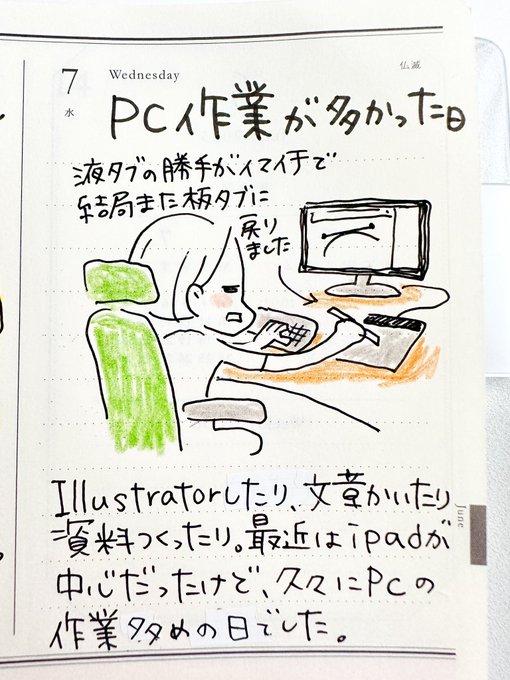 7
Wednesday
仏滅
水
PC作業が多かった日
液タブの勝手がイマイチで
結局また板タブに
戻り
ました
Illustratorしたり、文章かいたり
資料つくったり。最近はipadが
中心だったけど、久々にPcの
作業多めの日でした。
June